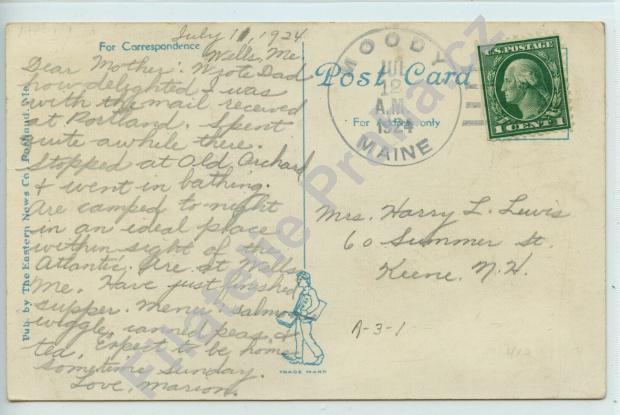 July 11, 1924
For Correspondence
Wells, Me
Dear Mother: Wrote Dad
how delighted I was
with the mail received
at Portland. Spent
quite awhile there.
Stopped at Old Orchard
& went in bathing.
Are camped to night
in an ideal place
within sight of the
Atlantic. Are at Wells,
Me. Have just finished
supper. Menu: salmon
wiggle, canned peas, &
tea. Expect to be home
sometime Sunday.
Love, Marion.
Pub. by The Eastern News Co., Portland, Me.
TRADE MARK
Post Card
For Address only
MOODY
JUL
12
A.M.
1924
MAINE
U.S. POSTAGE
1 CENT 1
Mrs. Harry L. Lewis
60 Summer St.
Keene, N.H.
A-3-1
Filatelie Praha.cz